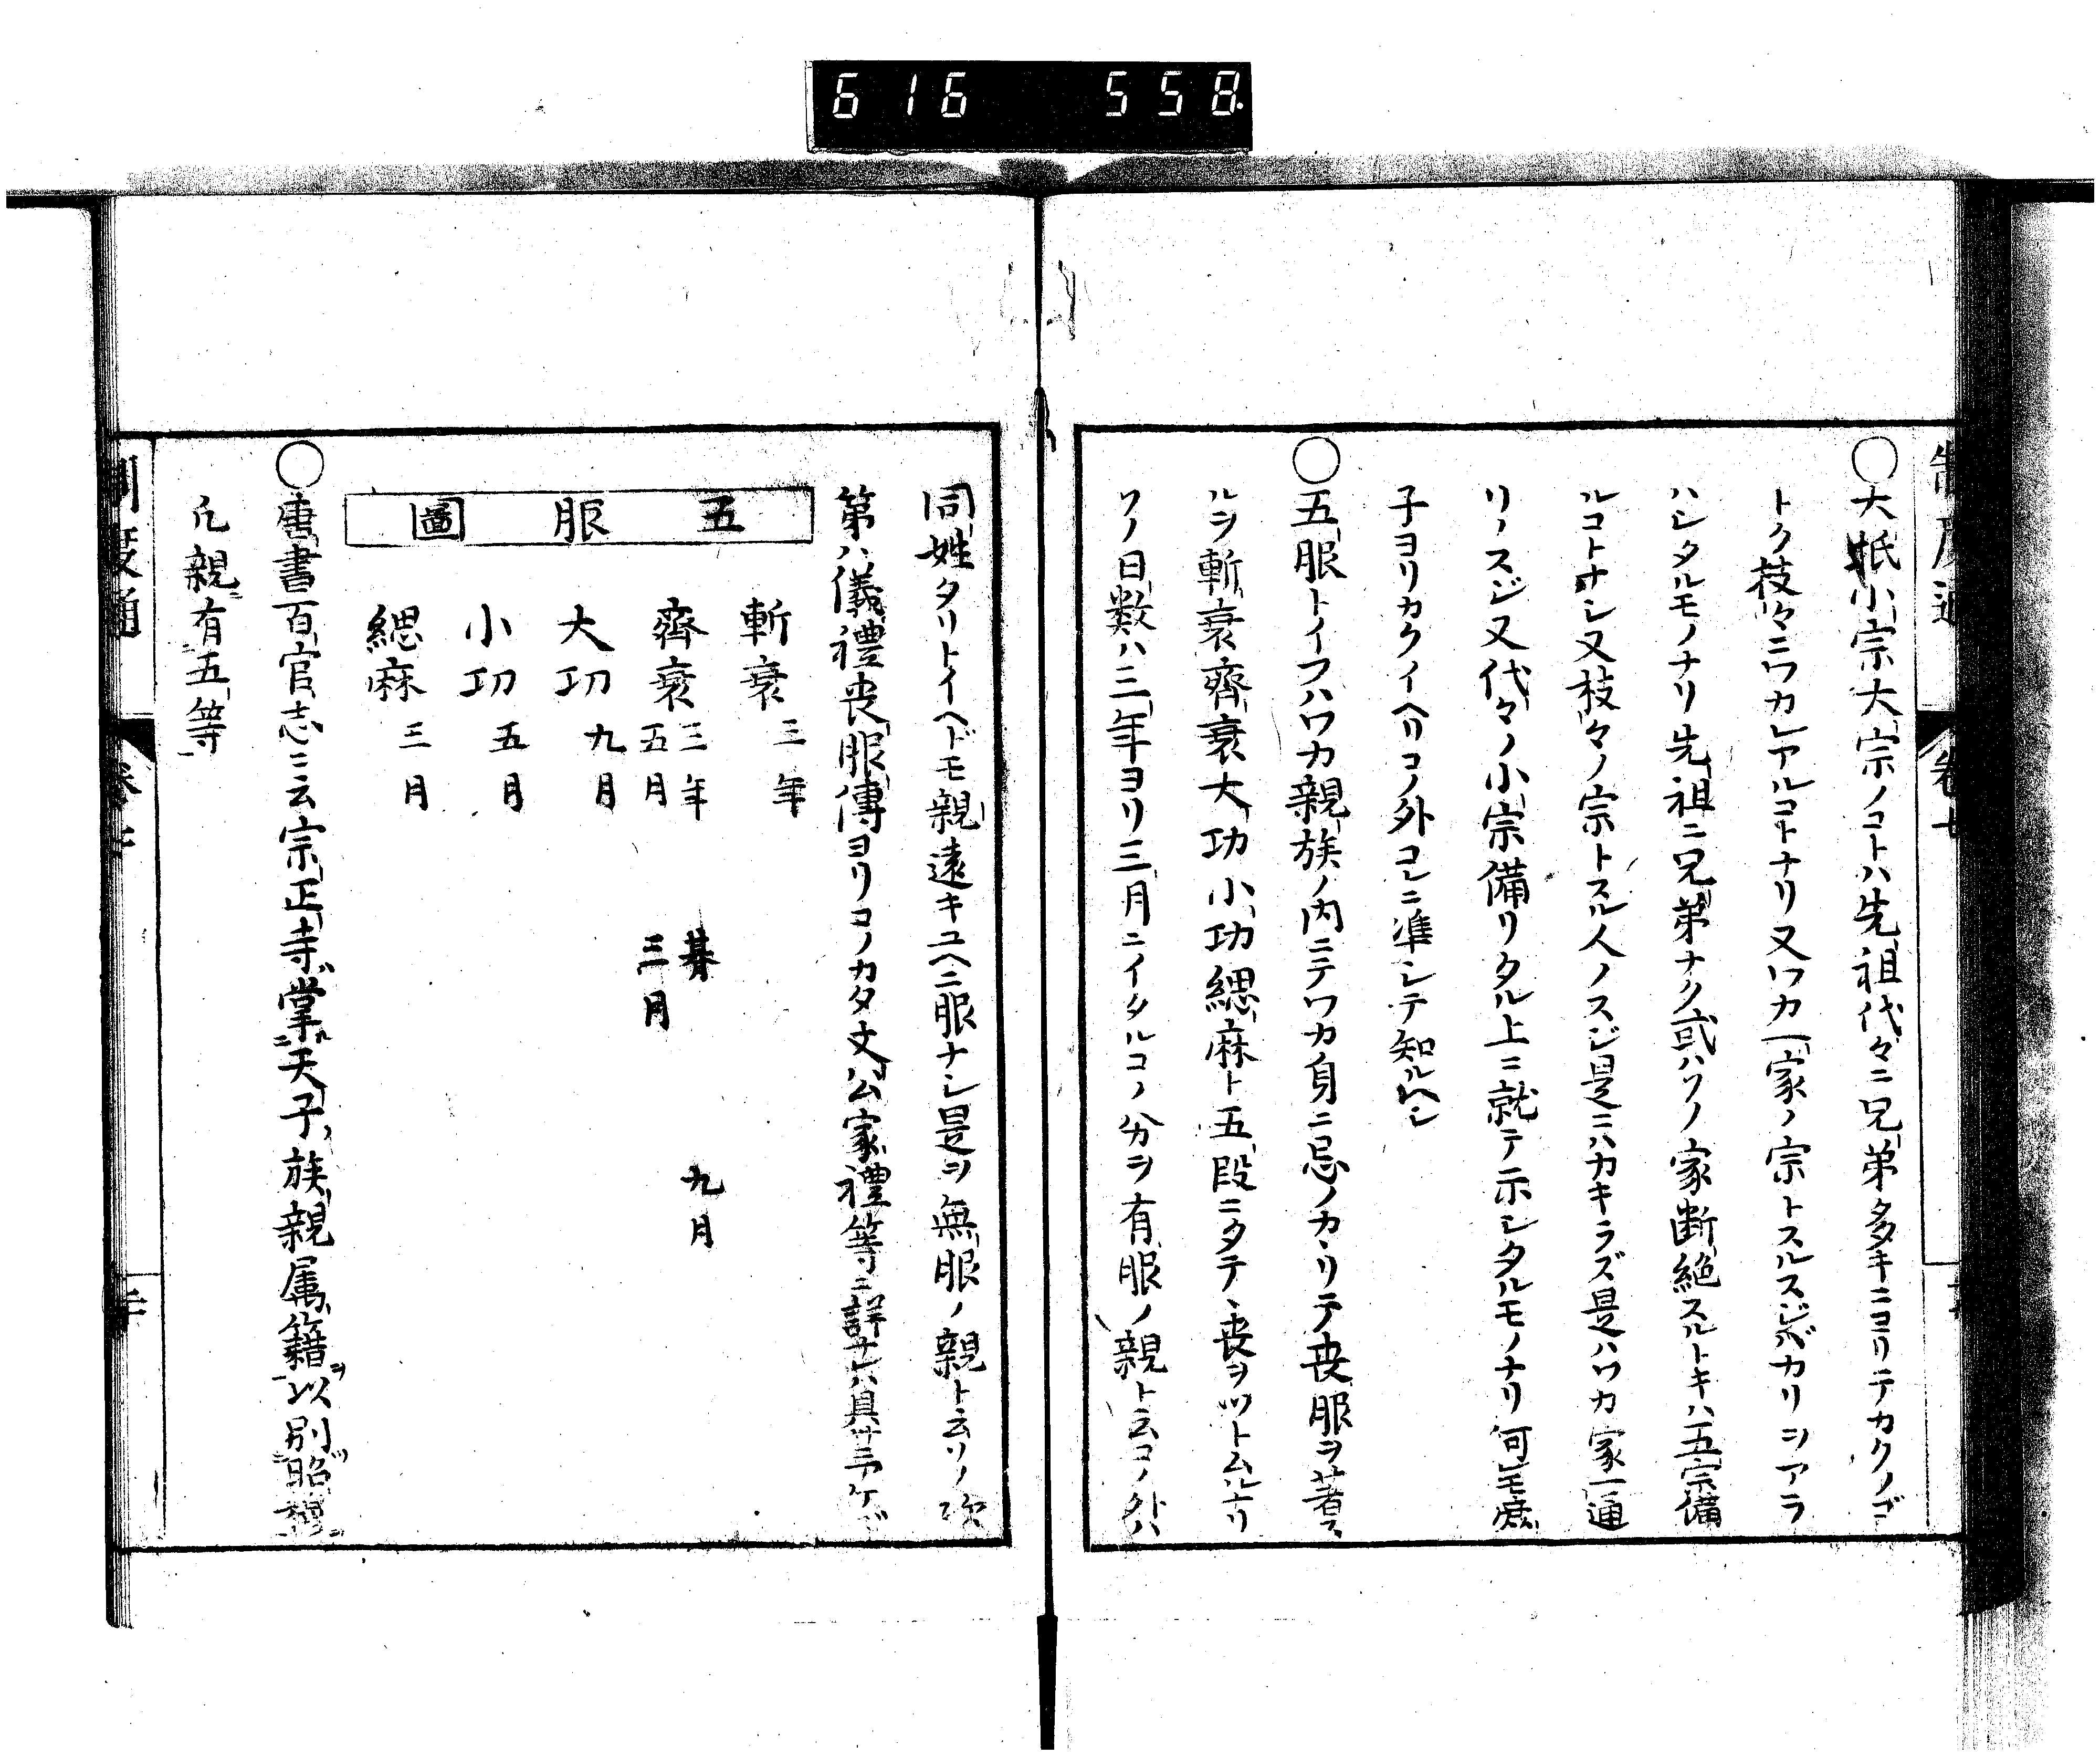 616 558
〇大抵小宗大宗ノコトハ先祖代々ニ兄弟多キニヨリテカクノゴ
トク枝々ニワカレアルコトナリ又ワカ一家ノ宗トスルスジバカリシアラ
ハシタルモノナリ先祖ニ兄弟ナク或ハソノ家断絶スルトキハ五宗備
ルコトナシ又枝々ノ宗トスル人ノスジ是ニハカキラズ是ハワカ家一通
リノスジ又代々ノ小宗備リタル上ニ就テ示シタルモノナリ何モ庶
子ヨリカクイヘリコノ外コレニ準シテ知ルヘシ
〇五服トイフハワカ親族ノ内ニテワカ身ニ忌ノカヽリテ喪服ヲ著ス
ルヲ斬衰齊衰大功小功緦麻ト五段ニタテ喪ヲツトムルナリ
ソノ日数ハ三年ヨリ三月ニイタルコノ分ヲ有服ノ親ト云コノ外ハ
同姓タリトイヘドモ親遠キユヘニ服ナシ是ヲ無服ノ親ト云ソノ次
第ハ儀禮喪服傳ヨリコノカタ文公家禮等ニ詳ナレハ具サニアケズ
五服圖
斬衰 三年
齊衰 三年 朞 九月
五月 三月
大功 九月
小功 五月
緦麻 三月
〇唐書百官志ニ云宗正寺掌天子族親属籍ヲ以別昭穆
凡親有五等
制度通 巻七